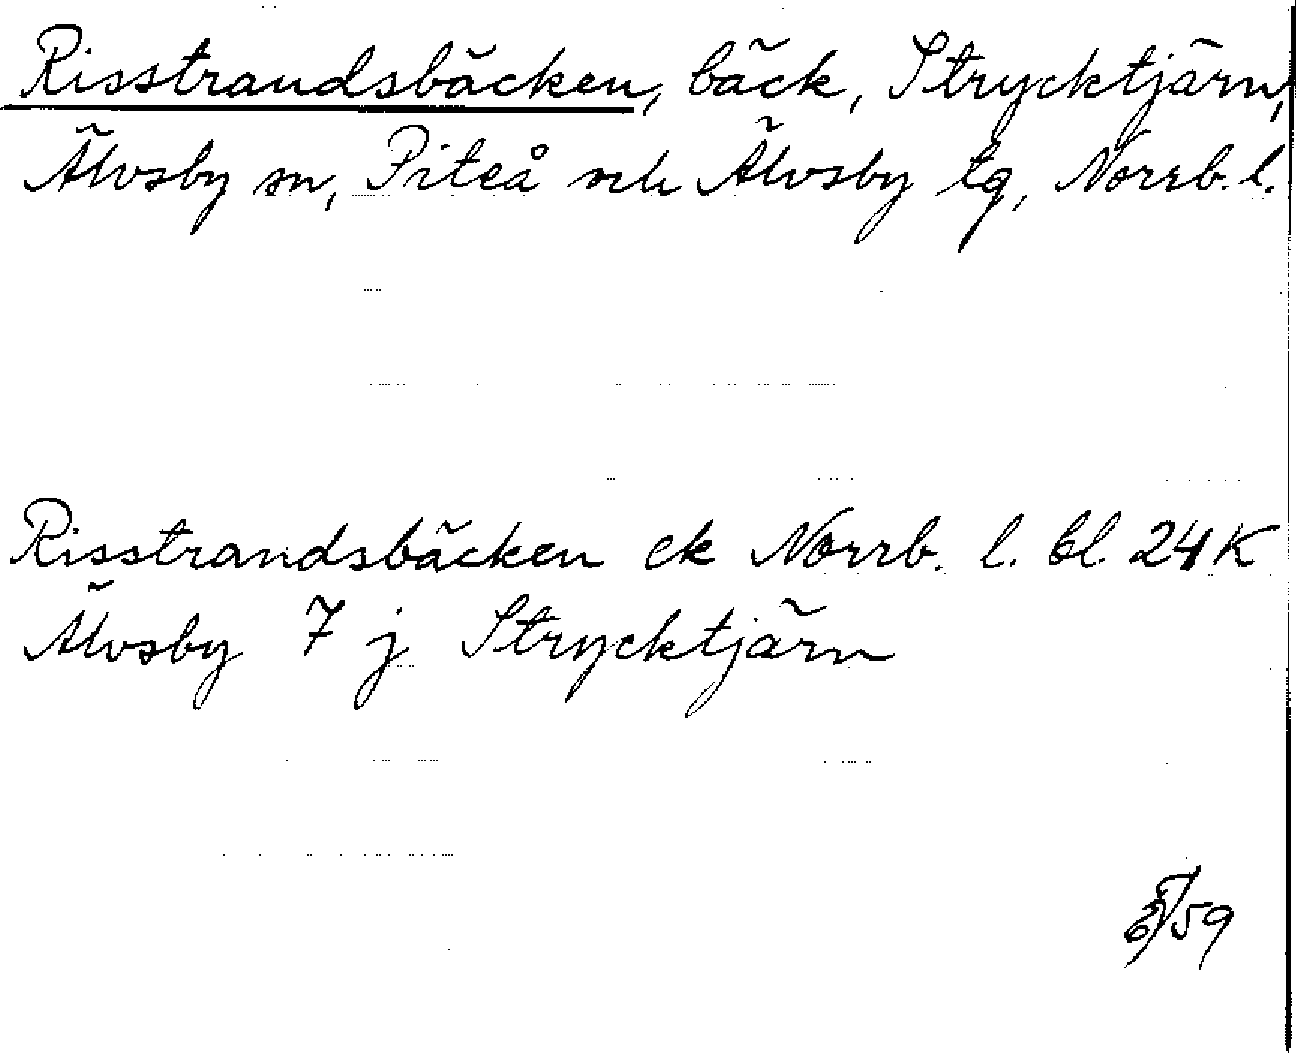 Risstrandsbäcken, bäck, Strycktjärn,
Älvsby sn, Piteå och Älvsby tg, Norrb. l.
Risstrandsbäcken ek Norrb. l. bl. 24 K
Älvsby 7 j Strycktjärn